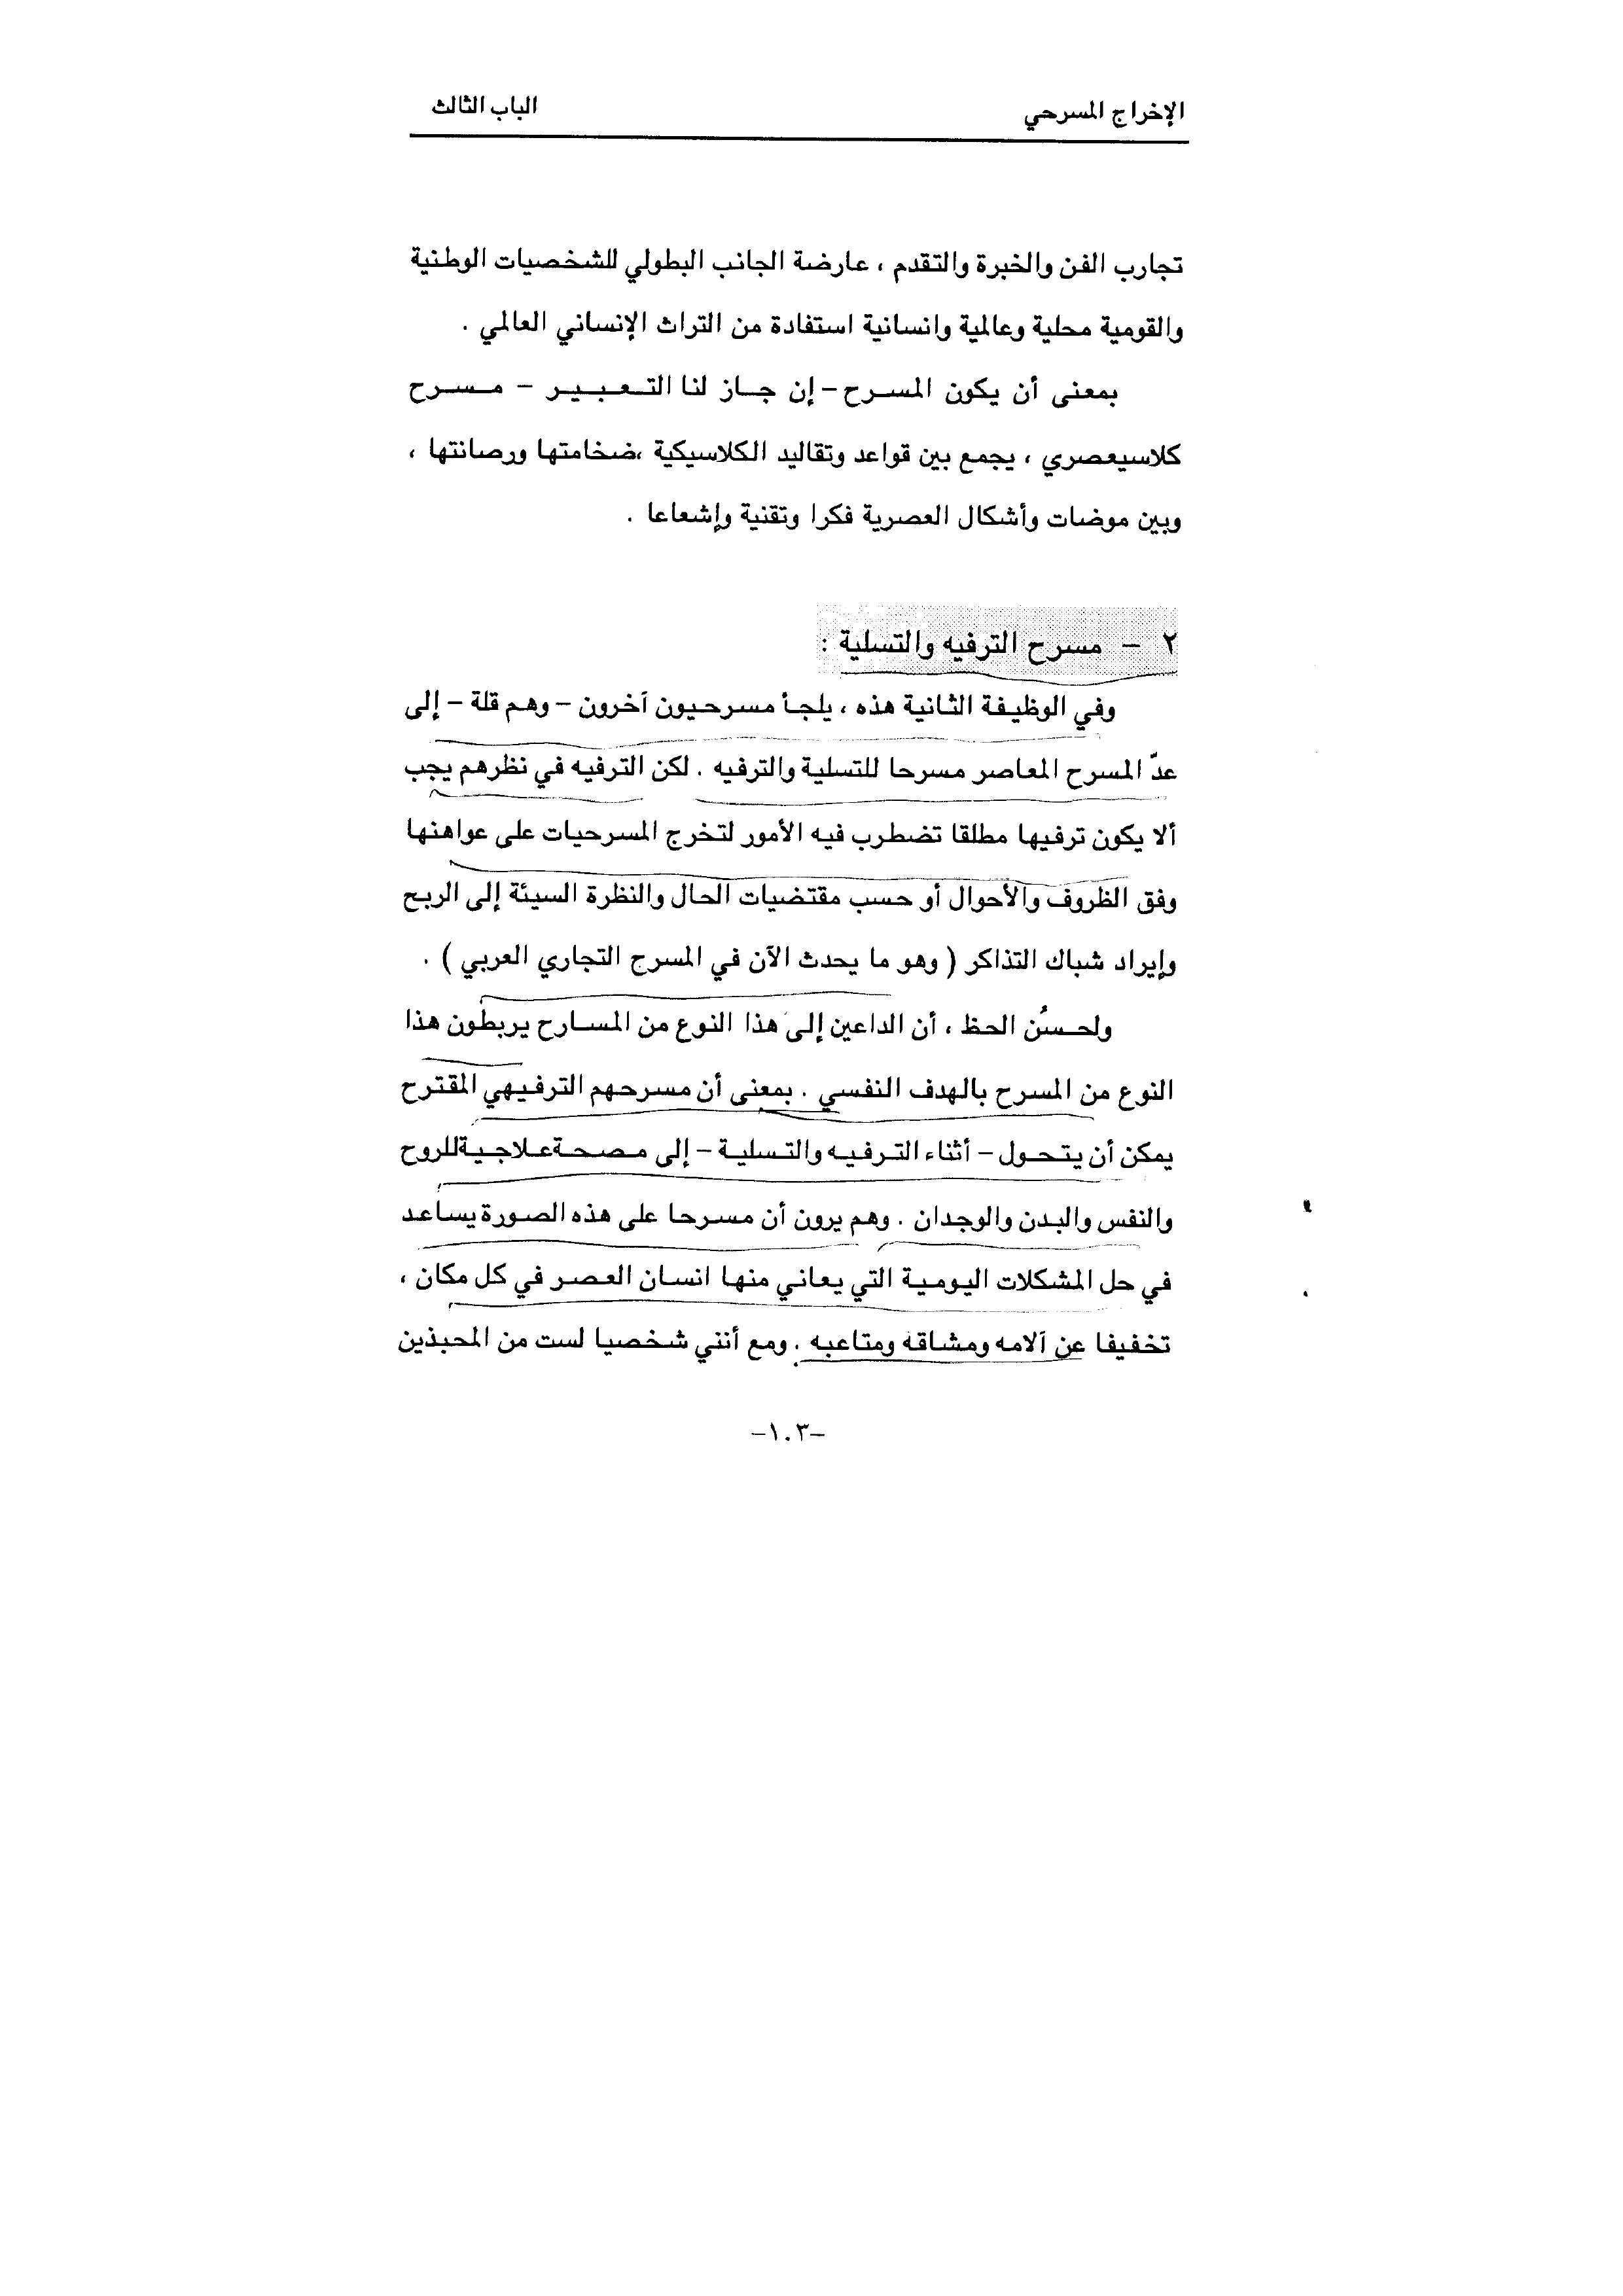 الإخراج المسرحي
الباب الثالث
تجارب الفن والخبرة والتقدم ، عارضة الجانب البطولي للشخصيات الوطنية
والقومية محلية وعالمية وانسانية استفادة من التراث الإنساني العالمي .
بمعنى أن يكون المسرح – إن جاز لنا التعبير – مسرح
كلاسيعصري ، يجمع بين قواعد وتقاليد الكلاسيكية ،ضخامتها ورصانتها ،
وبين موضات وأشكال العصرية فكرا وتقنية وإشعاعا .
٢ – مسرح الترفيه والتسلية :
وفي الوظيفة الثانية هذه ، يلجأ مسرحيون آخرون – وهم قلة – إلى
عدّ المسرح المعاصر مسرحا للتسلية والترفيه . لكن الترفيه في نظرهم يجب
ألا يكون ترفيها مطلقا تضطرب فيه الأمور لتخرج المسرحيات على عواهنها
وفق الظروف والأحوال أو حسب مقتضيات الحال والنظرة السيئة إلى الربح
وإيراد شباك التذاكر ( وهو ما يحدث الآن في المسرح التجاري العربي ) .
ولحسُن الحظ ، أن الداعين إلى هذا النوع من المسارح يربطون هذا
النوع من المسرح بالهدف النفسي . بمعنى أن مسرحهم الترفيهي المقترح
يمكن أن يتحول – أثناء الترفيه والتسلية – إلى مصحة علاجية للروح
والنفس والبدن والوجدان . وهم يرون أن مسرحا على هذه الصورة يساعد
في حل المشكلات اليومية التي يعاني منها انسان العصر في كل مكان ،
تخفيفا عن آلامه ومشاقه ومتاعبه . ومع أنني شخصيا لست من المحبذين
–١٠٣–